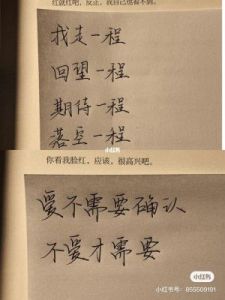 红就红吧，反正，我自己也看不到。
我走一程
回望一程
期待一程
落空一程
小红书
你看我脸红，应该，很高兴吧。
爱不需要确认
不爱才需要
小红书
小红书号：855509191